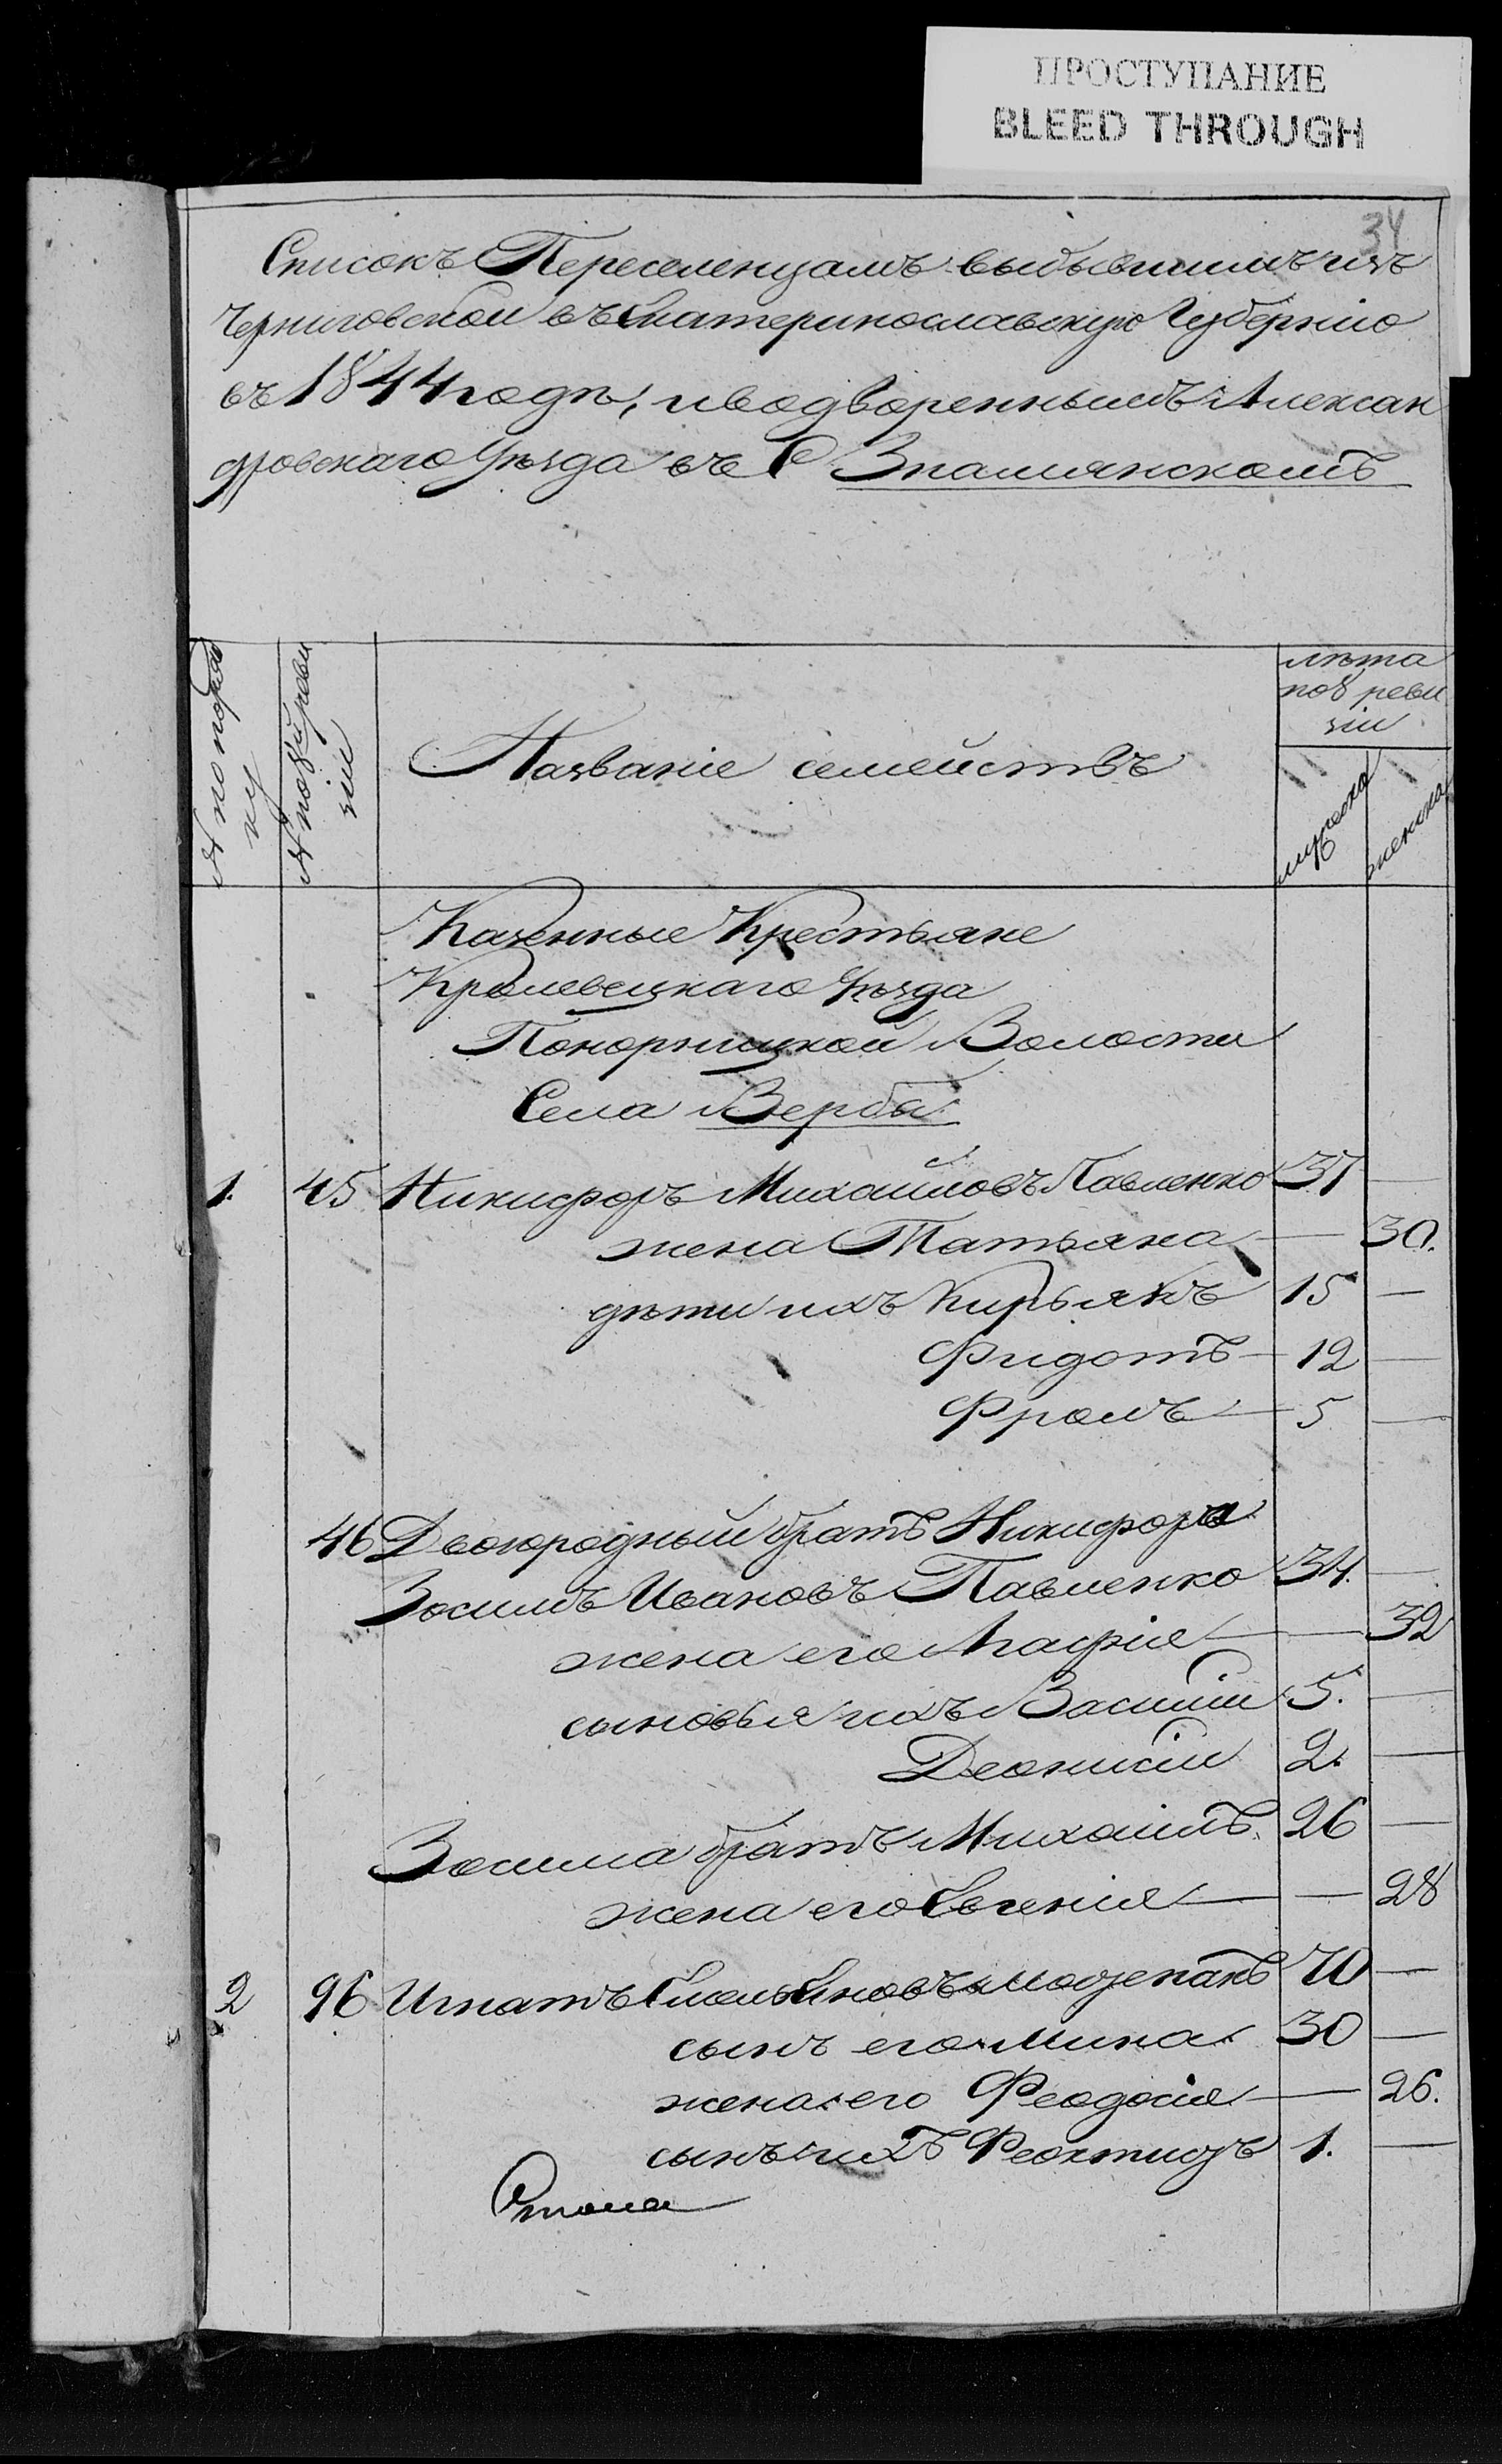 ПРОСТУПАНИЕ
BLEED THROUGH
34
Списокъ Переселенцамъ выбывшимъ изъ
Черниговской въ Екатеринославскую Губернію
въ 1844 годѣ, и водвореннымъ Алексан
дровскаго Уѣзда въ С Знамянскомъ
№ по поряд
ку
№ по 8й реви
зіи
Названіе семействъ
лѣта
по 8 реви
зіи
мужеска
женска
Казенные Крестьяне
Кролевецкаго Уѣзда
Понорницкой Волости
Села Верба
1. 45 Никифоръ Михайловъ Павленко 37 —
жена Татьяна — 30.
дѣти ихъ Кирьякъ 15 —
Фидотъ — 12 —
Фролъ — 5 —
46 Двоюродный братъ Никифора
Зосимъ Ивановъ Павленко 34. —
жена его Агафія — 32
сыновья ихъ Василій 5. —
Деонисій 2. —
Зосима братъ Михаилъ 26 —
жена его Евгенія — 28
2 96 Игнатъ 70 —
сынъ его Мина 30 —
жена его Феодосія — 26.
сынъ ихъ Феоктистъ 1. —